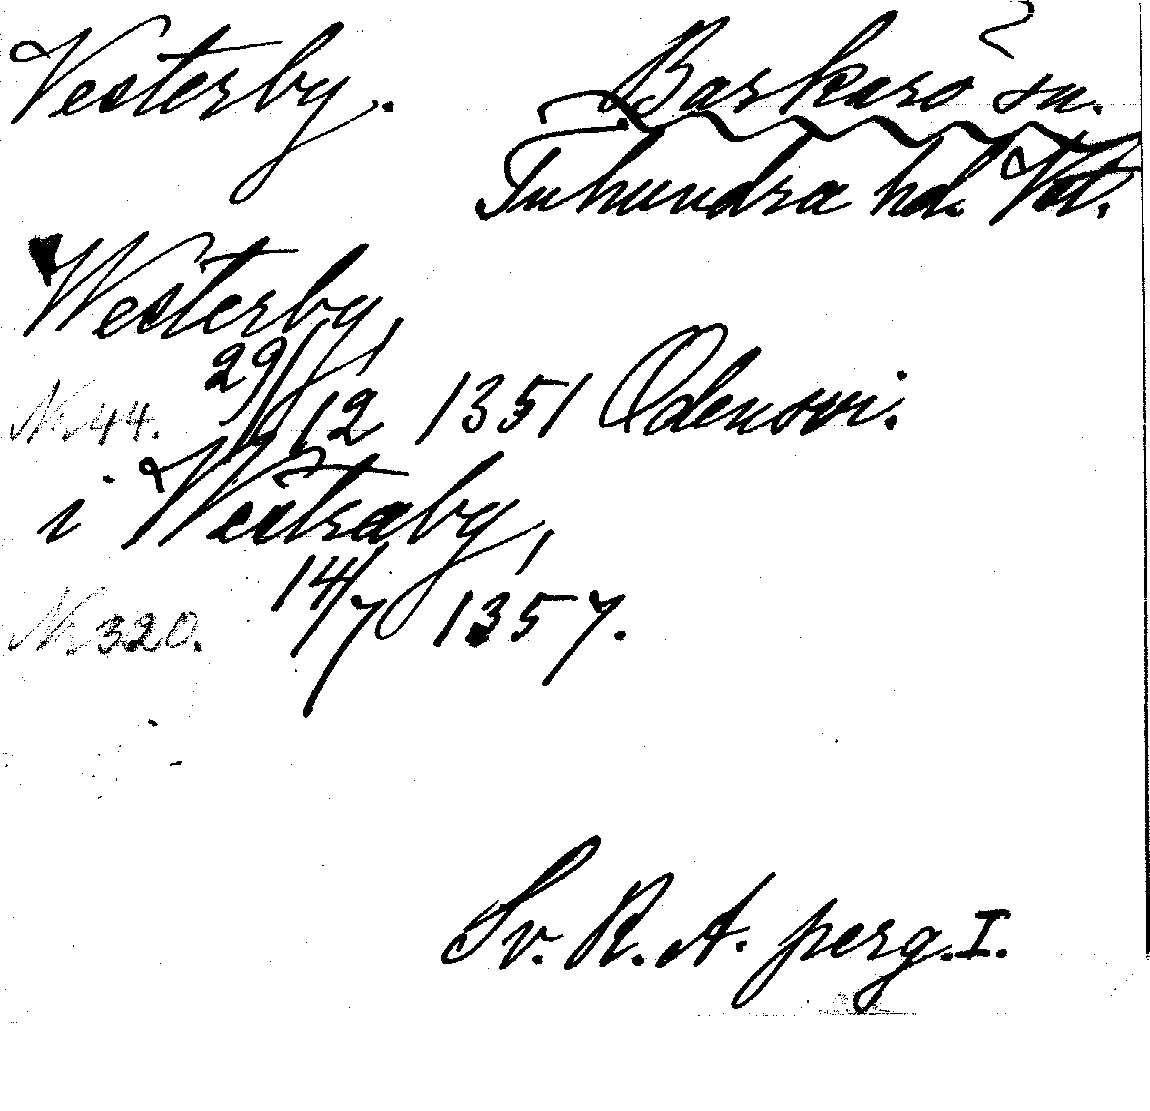 Vesterby. Barkarö sn. ?
Tuhundra hd. Vst.
Westerby,
Nr 44. 29/12 1351 Odensvi.
i Westraby,
Nr 320. 14/7 1357.
Sv. R. A. perg. I.